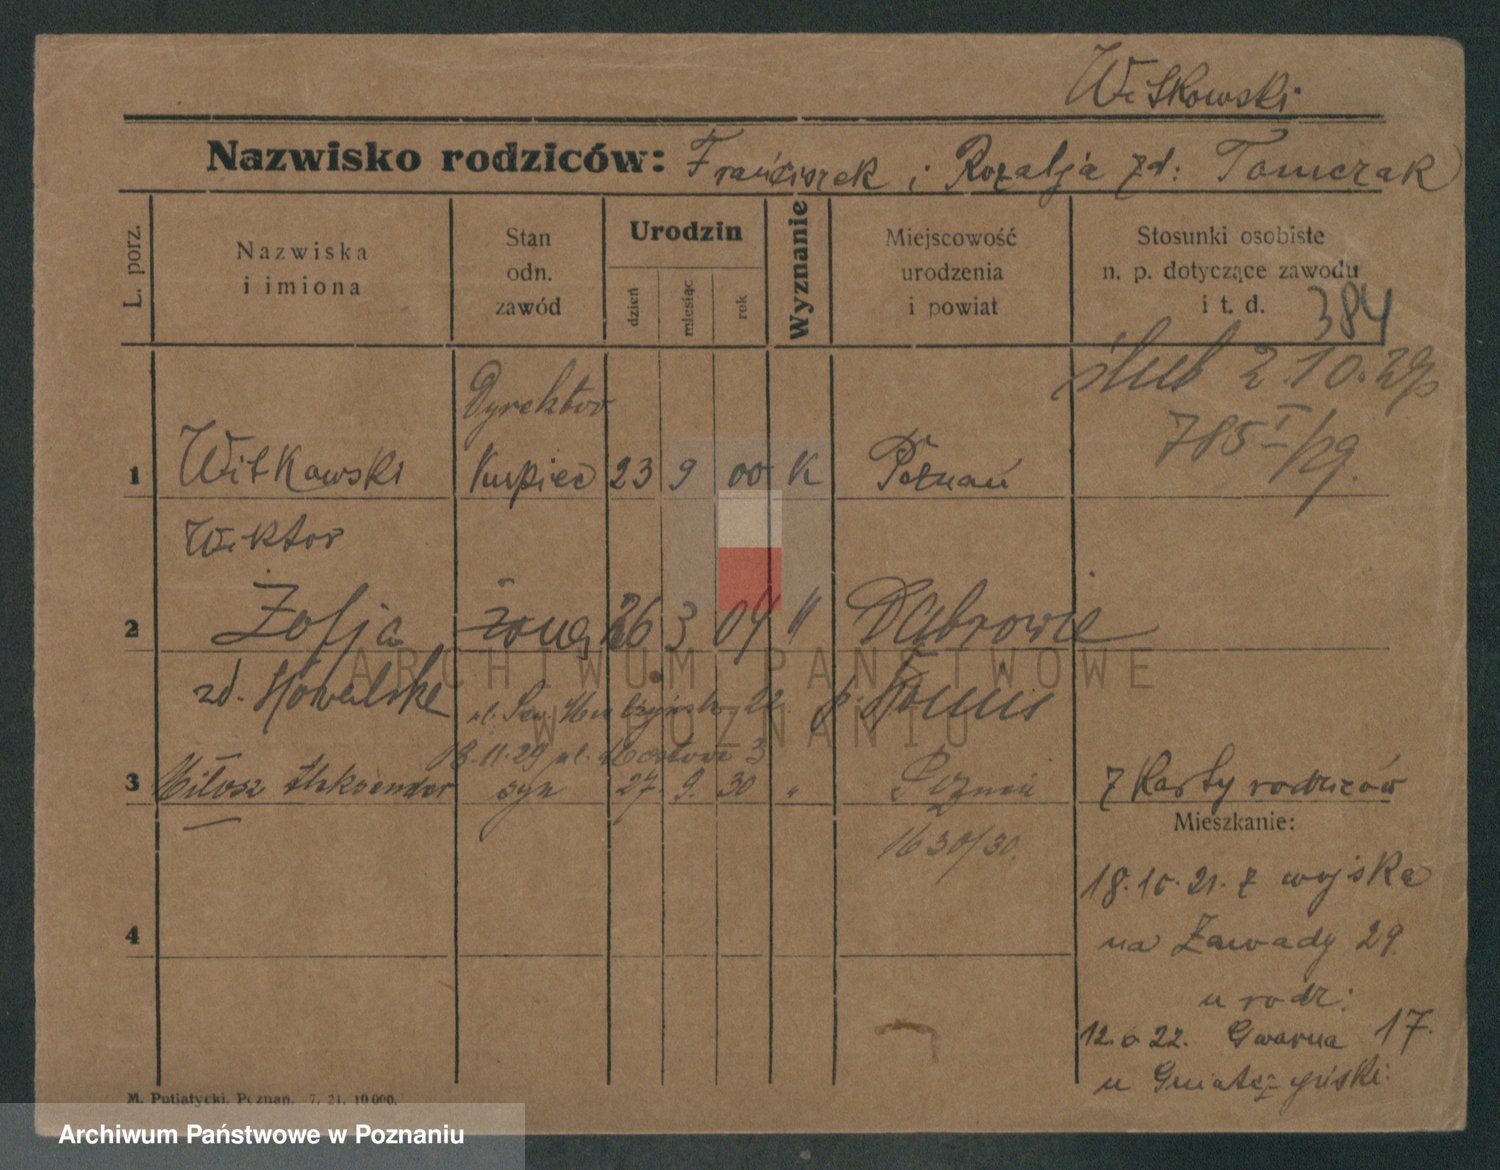 Witkowski
Nazwisko rodziców: Franciszek i Rozalja zd: Tomczak
L. porz.
Nazwiska
i imiona
Stan
odn.
zawód
Urodzin
dzień
miesiąc
rok
Wyznanie
Miejscowość
urodzenia
i powiat
Stosunki osobiste
n. p. dotyczące zawodu
i t. d.
384
ślub 2.10.29
785 I/29.
Dyrektor
1 Witkowski Kupiec 23 9 00 K Poznań
Wiktor
2 Zofja żona 26 3 04 " Dąbrowie
zd. Kowalska
22.
18.11.29 ul. 3
3 Miłosz Aleksander syn 27. 9. 30 " Poznań
1630/30.
z Karty rodziców
Mieszkanie:
18.10.21. z wojska
na Zawady 29.
u rodz:
12. 6 22. Gwarna 17.
u
4
M. Putiatycki, Poznań. 7. 21. 10 000.
ARCHIWUM PAŃSTWOWE
W POZNANIU
Archiwum Państwowe w Poznaniu